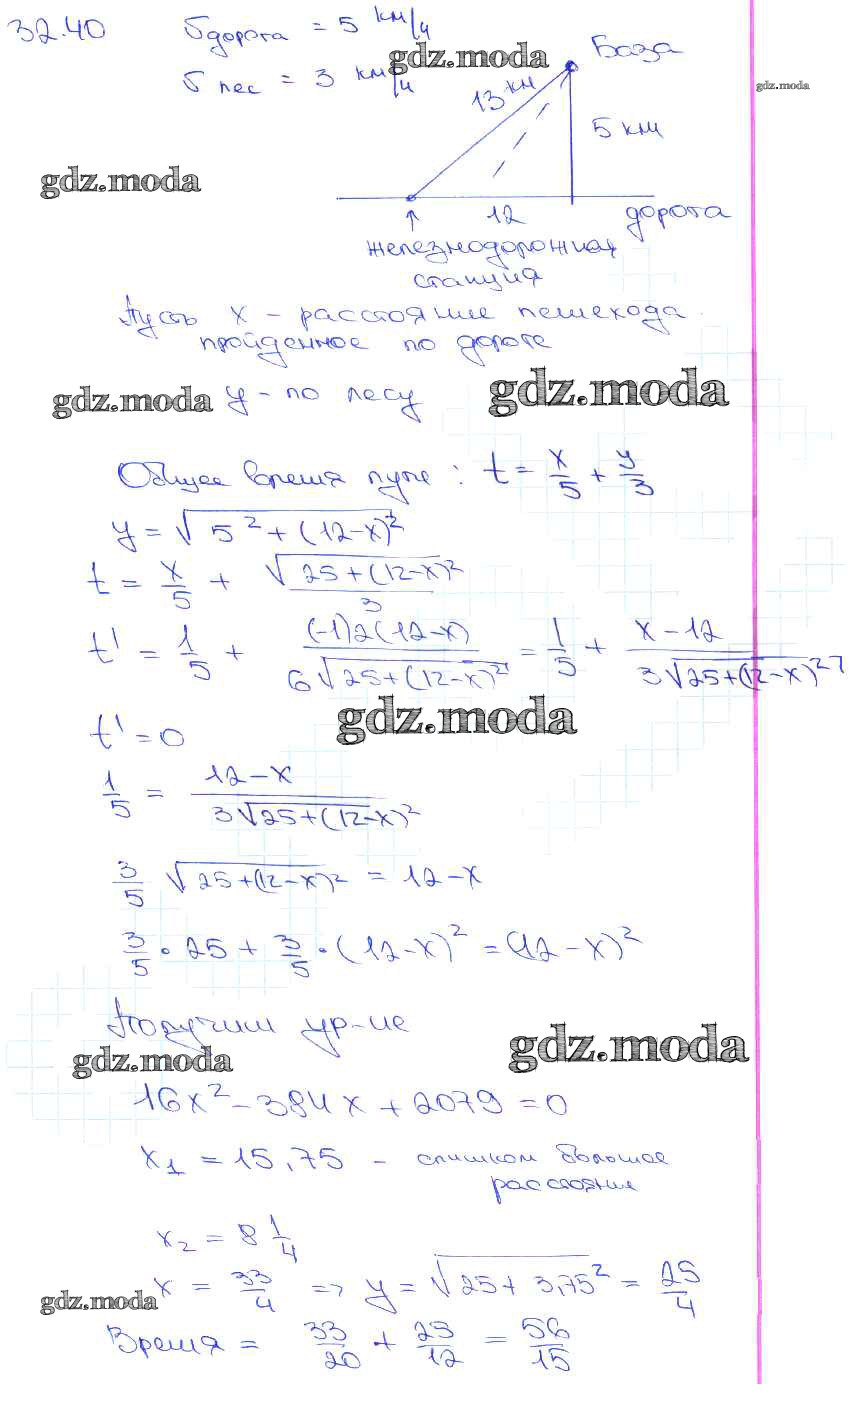 32.40 υ дорога = 5 км/ч
υ лес = 3 км/ч
gdz.moda
База
gdz.moda
13 км
5 км
gdz.moda
12
дорога
железнодорожная
станция
Пусть x - расстояние пешехода
пройденное по дороге
gdz.moda y - по лесу gdz.moda
Общее время пути: t = x/5 + y/3
y = √(5² + (12-x)²)
t = x/5 + √(25+(12-x)²)/3
t' = 1/5 + (-1)2(12-x)/(6√(25+(12-x)²)) = 1/5 + (x-12)/(3√(25+(12-x)²))
gdz.moda
t' = 0
1/5 = (12-x)/(3√(25+(12-x)²))
3/5 √(25+(12-x)²) = 12-x
3/5 · 25 + 3/5 · (12-x)² = (12-x)²
Получим ур-ие
gdz.moda gdz.moda
16x² - 384x + 2079 = 0
x₁ = 15,75 - слишком большое
расстояние
x₂ = 8 1/4
gdz.moda x = 33/4 => y = √(25 + 3,75²) = 25/4
Время = 33/20 + 25/12 = 56/15